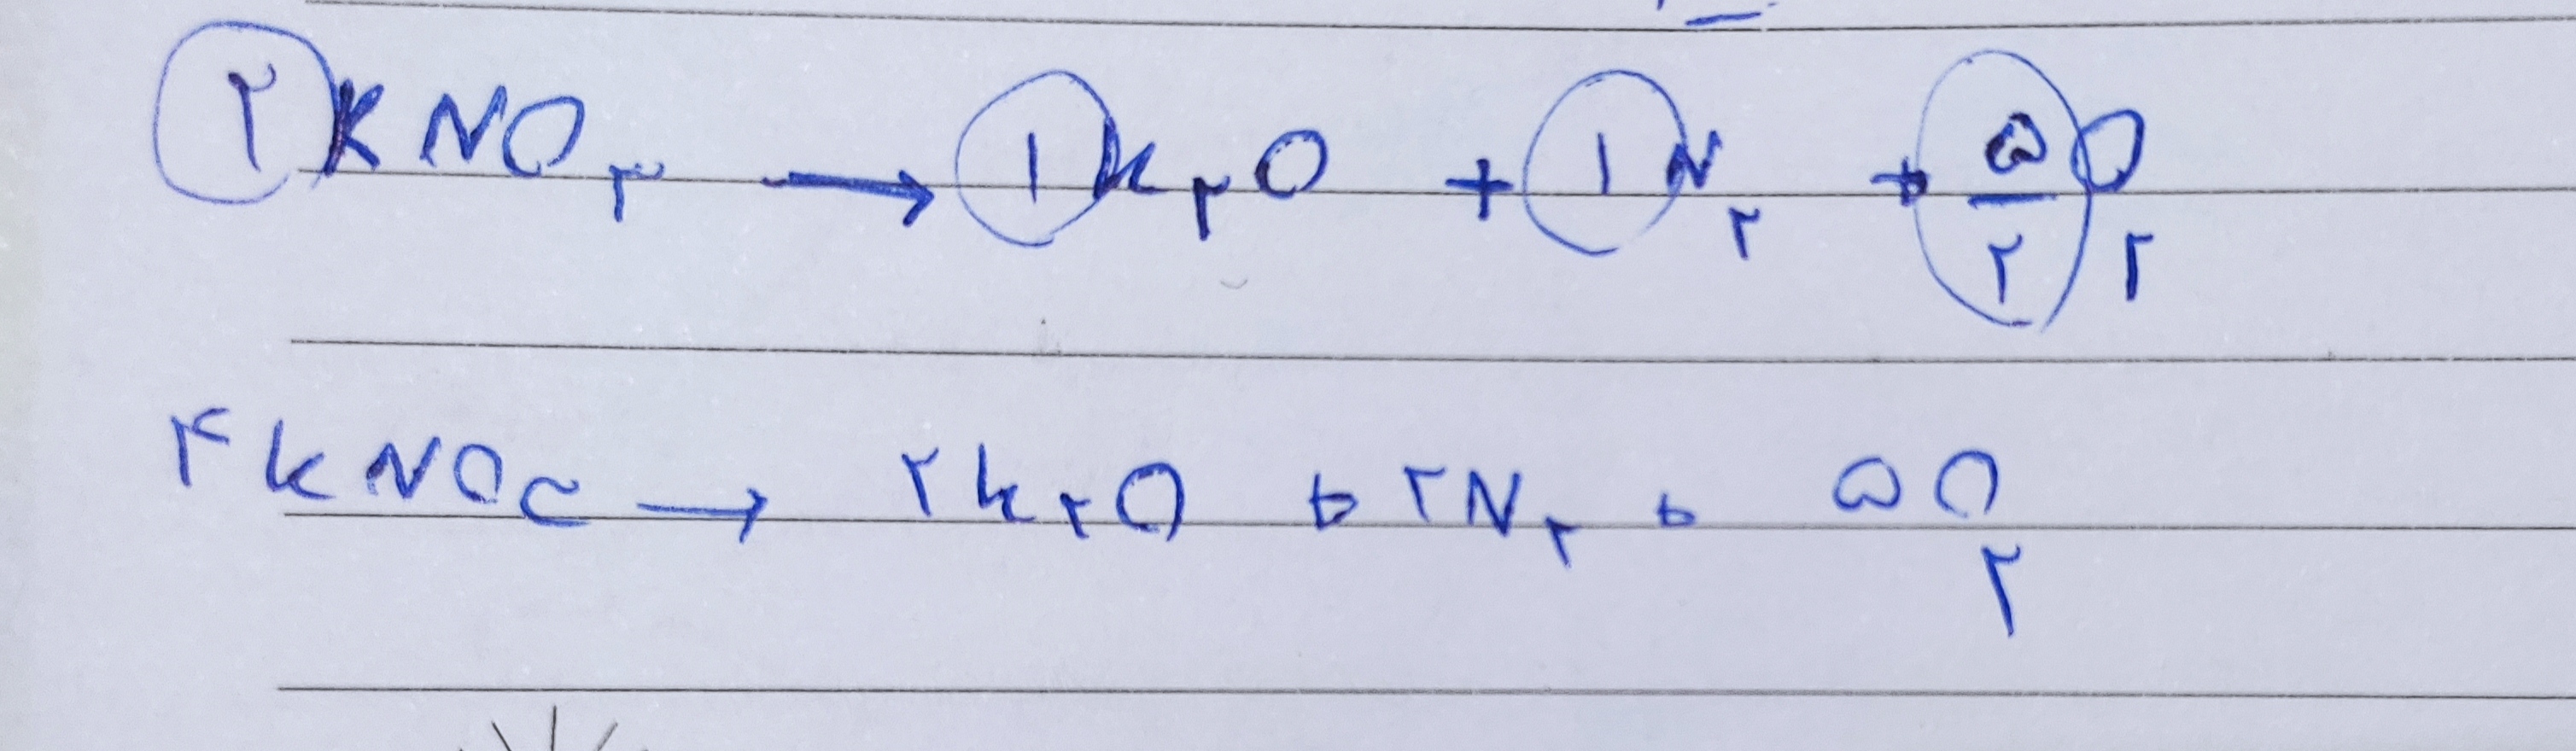 ۲KNO۳ → ۱K۲O + ۱N۲ + ۵/۲ O۲
۴KNO۳ → ۲K۲O + ۲N۲ + ۵O۲